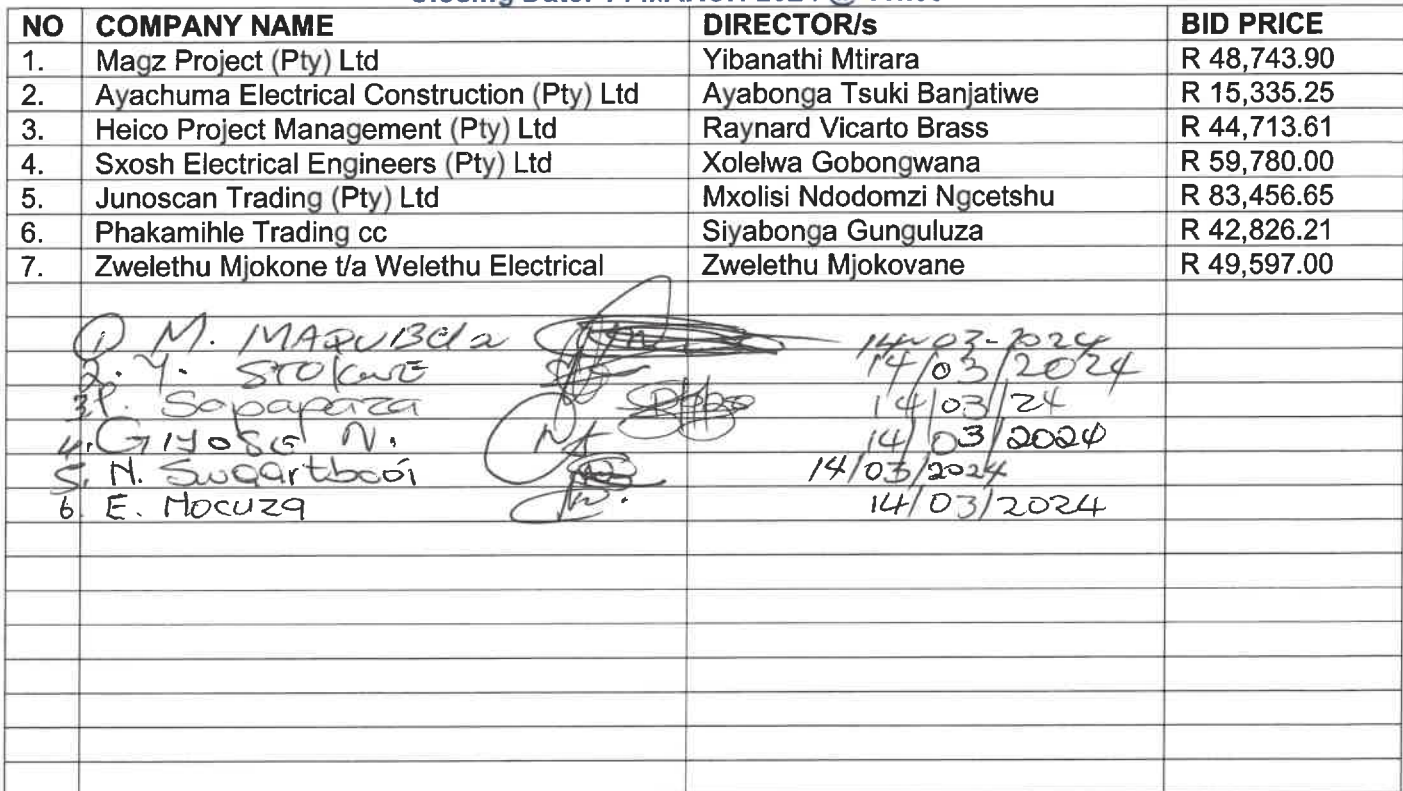 NO COMPANY NAME DIRECTOR/s BID PRICE
1. Magz Project (Pty) Ltd Yibanathi Mtirara R 48,743.90
2. Ayachuma Electrical Construction (Pty) Ltd Ayabonga Tsuki Banjatiwe R 15,335.25
3. Heico Project Management (Pty) Ltd Raynard Vicarto Brass R 44,713.61
4. Sxosh Electrical Engineers (Pty) Ltd Xolelwa Gobongwana R 59,780.00
5. Junoscan Trading (Pty) Ltd Mxolisi Ndodomzi Ngcetshu R 83,456.65
6. Phakamihle Trading cc Siyabonga Gunguluza R 42,826.21
7. Zwelethu Mjokone t/a Welethu Electrical Zwelethu Mjokovane R 49,597.00
1 M. MAQUBela 14-03-2024
2. Y. 14/03/2024
3 P. Sapapaza 14/03/24
4. Giyose N. 14/03/2024
5. N. Swaartbooi 14/03/2024
6 E. Mocuza 14/03/2024